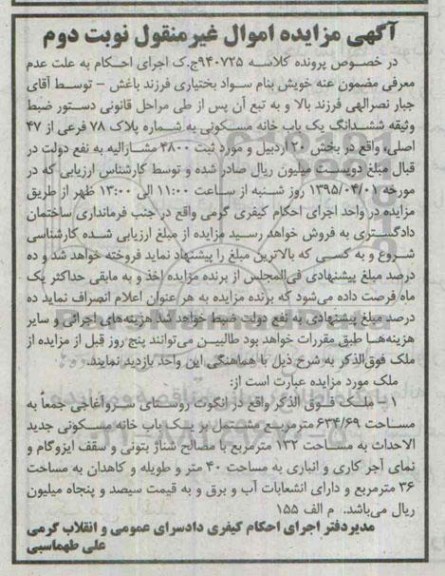 آگهی مزایده اموال غیرمنقول نوبت دوم
در خصوص پرونده کلاسه ۹۴۰۷۲۵ج.ک اجرای احکام به علت عدم
معرفی مضمون عنه خویش بنام سواد بختیاری فرزند باغش - توسط آقای
جبار نصرالهی فرزند بالا و به تبع آن پس از طی مراحل قانونی دستور ضبط
وثیقه ششدانگ یک باب خانه مسکونی به شماره پلاک ۷۸ فرعی از ۴۷
اصلی، واقع در بخش ۲۰ اردبیل و مورد ثبت ۴۸۰۰ مشارالیه به نفع دولت در
قبال مبلغ دویست میلیون ریال صادر شده و توسط کارشناس ارزیابی که در
مورخه ۱۳۹۵/۰۴/۰۱ روز شنبه از ساعت ۱۱:۰۰ الی ۱۳:۰۰ ظهر از طریق
مزایده در واحد اجرای احکام کیفری گرمی واقع در جنب فرمانداری ساختمان
دادگستری به فروش خواهد رسید مزایده از مبلغ ارزیابی شده کارشناسی
شروع و به کسی که بالاترین مبلغ را پیشنهاد نماید فروخته خواهد شد و ده
درصد مبلغ پیشنهادی فی‌المجلس از برنده مزایده اخذ و به مابقی حداکثر یک
ماه فرصت داده می‌شود که برنده مزایده به هر عنوان اعلام انصراف نماید ده
درصد مبلغ پیشنهادی به نفع دولت ضبط خواهد شد. هزینه‌های اجرائی و سایر
هزینه‌ها طبق مقررات خواهد بود طالبین می‌توانند پنج روز قبل از مزایده از
ملک فوق‌الذکر به شرح ذیل با هماهنگی این واحد بازدید نمایند.
ملک مورد مزایده عبارت است از:
ملک فوق الذکر واقع در انگوت روستای سرواغاجی جمعاً به
مساحت ۶۳۴/۶۹ مترمربع مشتمل بر یک باب خانه مسکونی جدید
الاحداث به مساحت ۱۳۲ مترمربع با مصالح شناژ بتونی و سقف ایزوگام و
نمای آجر کاری و انباری به مساحت ۴۰ متر و طویله و کاهدان به مساحت
۳۶ مترمربع و دارای انشعابات آب و برق و به قیمت سیصد و پنجاه میلیون
ریال می‌باشد. م الف ۱۵۵
مدیردفتر اجرای احکام کیفری دادسرای عمومی و انقلاب گرمی
علی طهماسبی